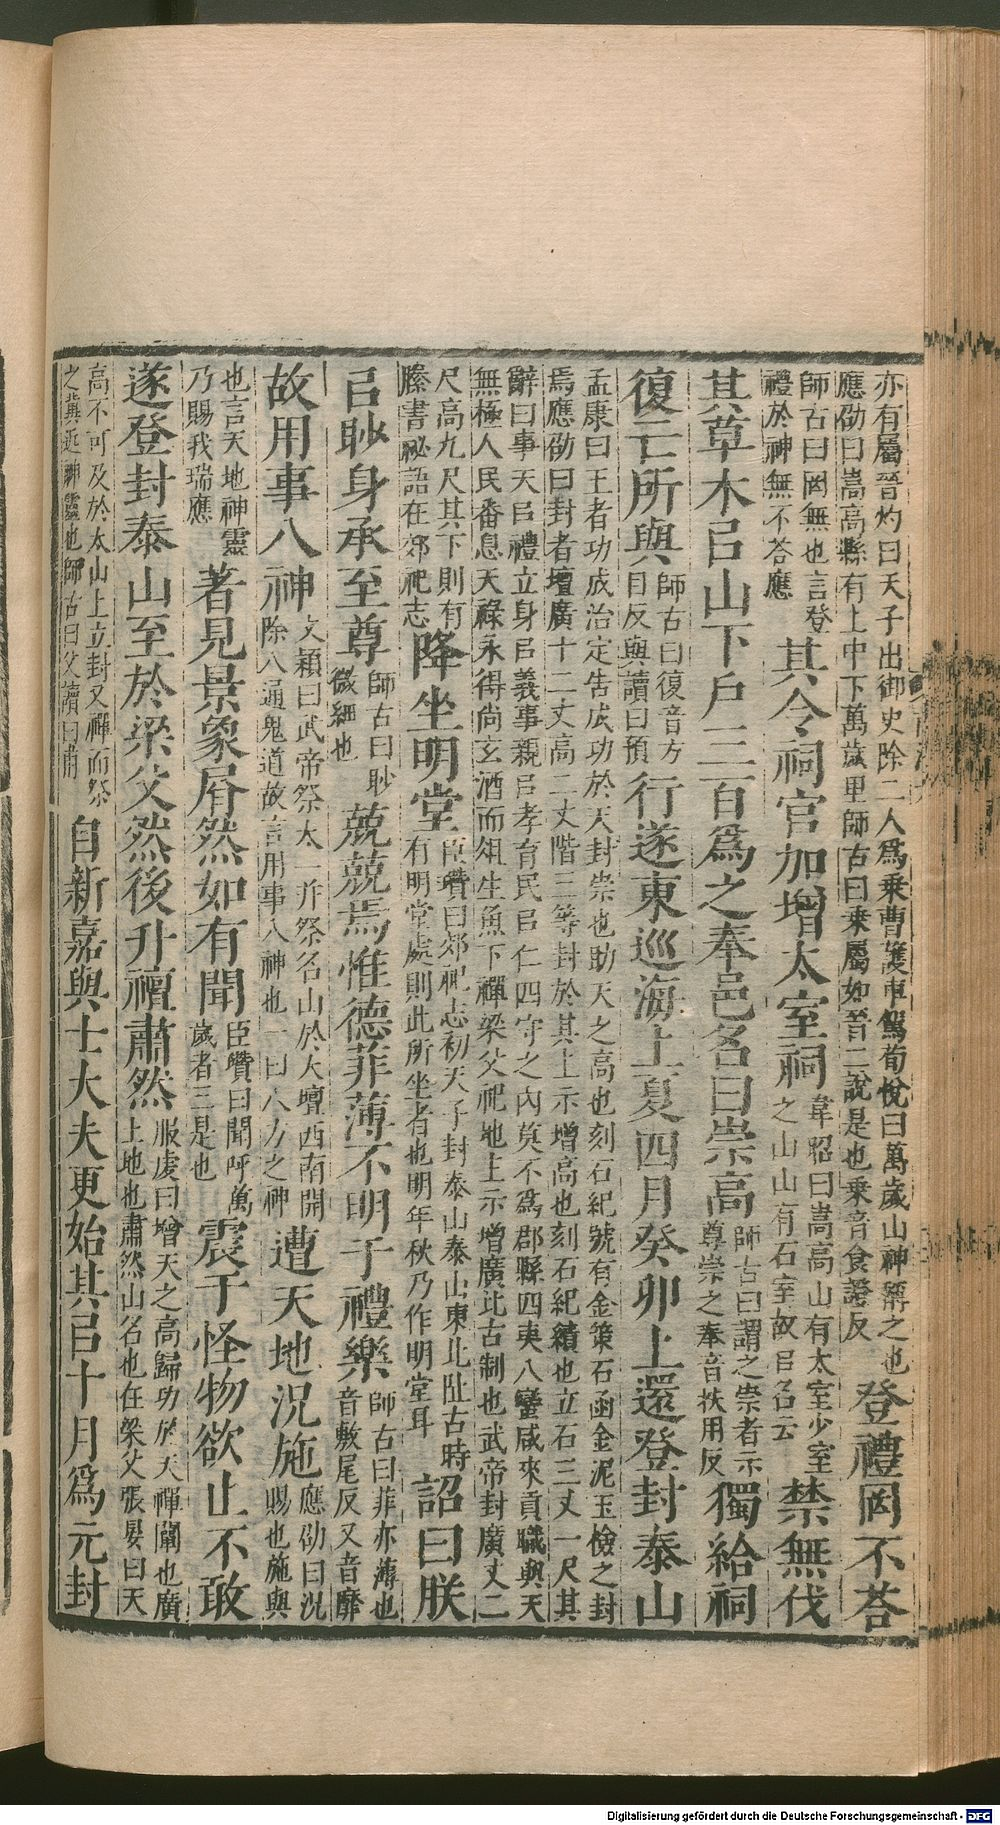 亦有屬晉灼曰天子出御史除二人爲乘曹護車駕荀悅曰萬歲山神稱之也
應劭曰嵩高縣有上中下萬歲里師古曰乘屬如晉二說是也乘音食證反
登禮罔不荅
師古曰罔無也言登
禮於神無不答應
其令祠官加增太室祠
韋昭曰嵩高山有太室少室
之山山有石室故㠯名云
禁無伐
其草木㠯山下戶三百爲之奉邑名曰崇高
師古曰謂之崇者示
尊崇之奉音扶用反
獨給祠
復亡所與
師古曰復音方
目反與讀曰預
行遂東巡海上夏四月癸卯上還登封泰山
孟康曰王者功成治定告成功於天封崇也助天之高也刻石紀號有金策石函金泥玉檢之封
焉應劭曰封者壇廣十二丈高二丈階三等封於其上示增高也刻石紀績也立石三丈一尺其
辭曰事天㠯禮立身㠯義事親㠯孝育民㠯仁四守之內莫不爲郡縣四夷八蠻咸來貢職與天
無極人民番息天祿永得尚玄酒而俎生魚下禪梁父祀地主示增廣此古制也武帝封廣丈二
尺高九尺其下則有
牒書祕語在郊祀志
降坐明堂
臣瓚曰郊祀志初天子封泰山泰山東北阯古時
有明堂處則此所坐者也明年秋乃作明堂耳
詔曰朕
㠯眇身承至尊
師古曰眇
微細也
兢兢焉惟德菲薄不明于禮樂
師古曰菲亦薄也
音敷尾反又音靡
故用事八神
文穎曰武帝祭太一并祭名山於太壇西南開
除八通鬼道故言用事八神也一曰八方之神
遭天地況施
應劭曰況
賜也施與
也言天地神靈
乃賜我瑞應
著見景象屑然如有聞
臣瓚曰聞呼萬
歲者三是也
震于怪物欲止不敢
遂登封泰山至於梁父然後升襢肅然
服虔曰增天之高歸功於天禪闡也廣
土地也肅然山名也在梁父張晏曰天
高不可及於太山上立封又禪而祭
之冀近神靈也師古曰父讀曰甫
自新嘉與士大夫更始其㠯十月爲元封
Digitalisierung gefördert durch die Deutsche Forschungsgemeinschaft - DFG